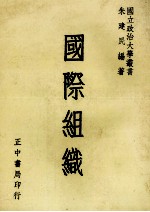 國立政治大學叢書
朱建民編著
國際組織
正中書局印行